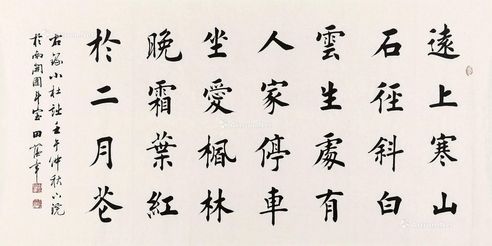 遠上寒山
石徑斜白
雲生處有
人家停車
坐愛楓林
晚霜葉紅
於二月花
右錄小杜詩壬午仲秋六浣
於南開園斗室田蘊章